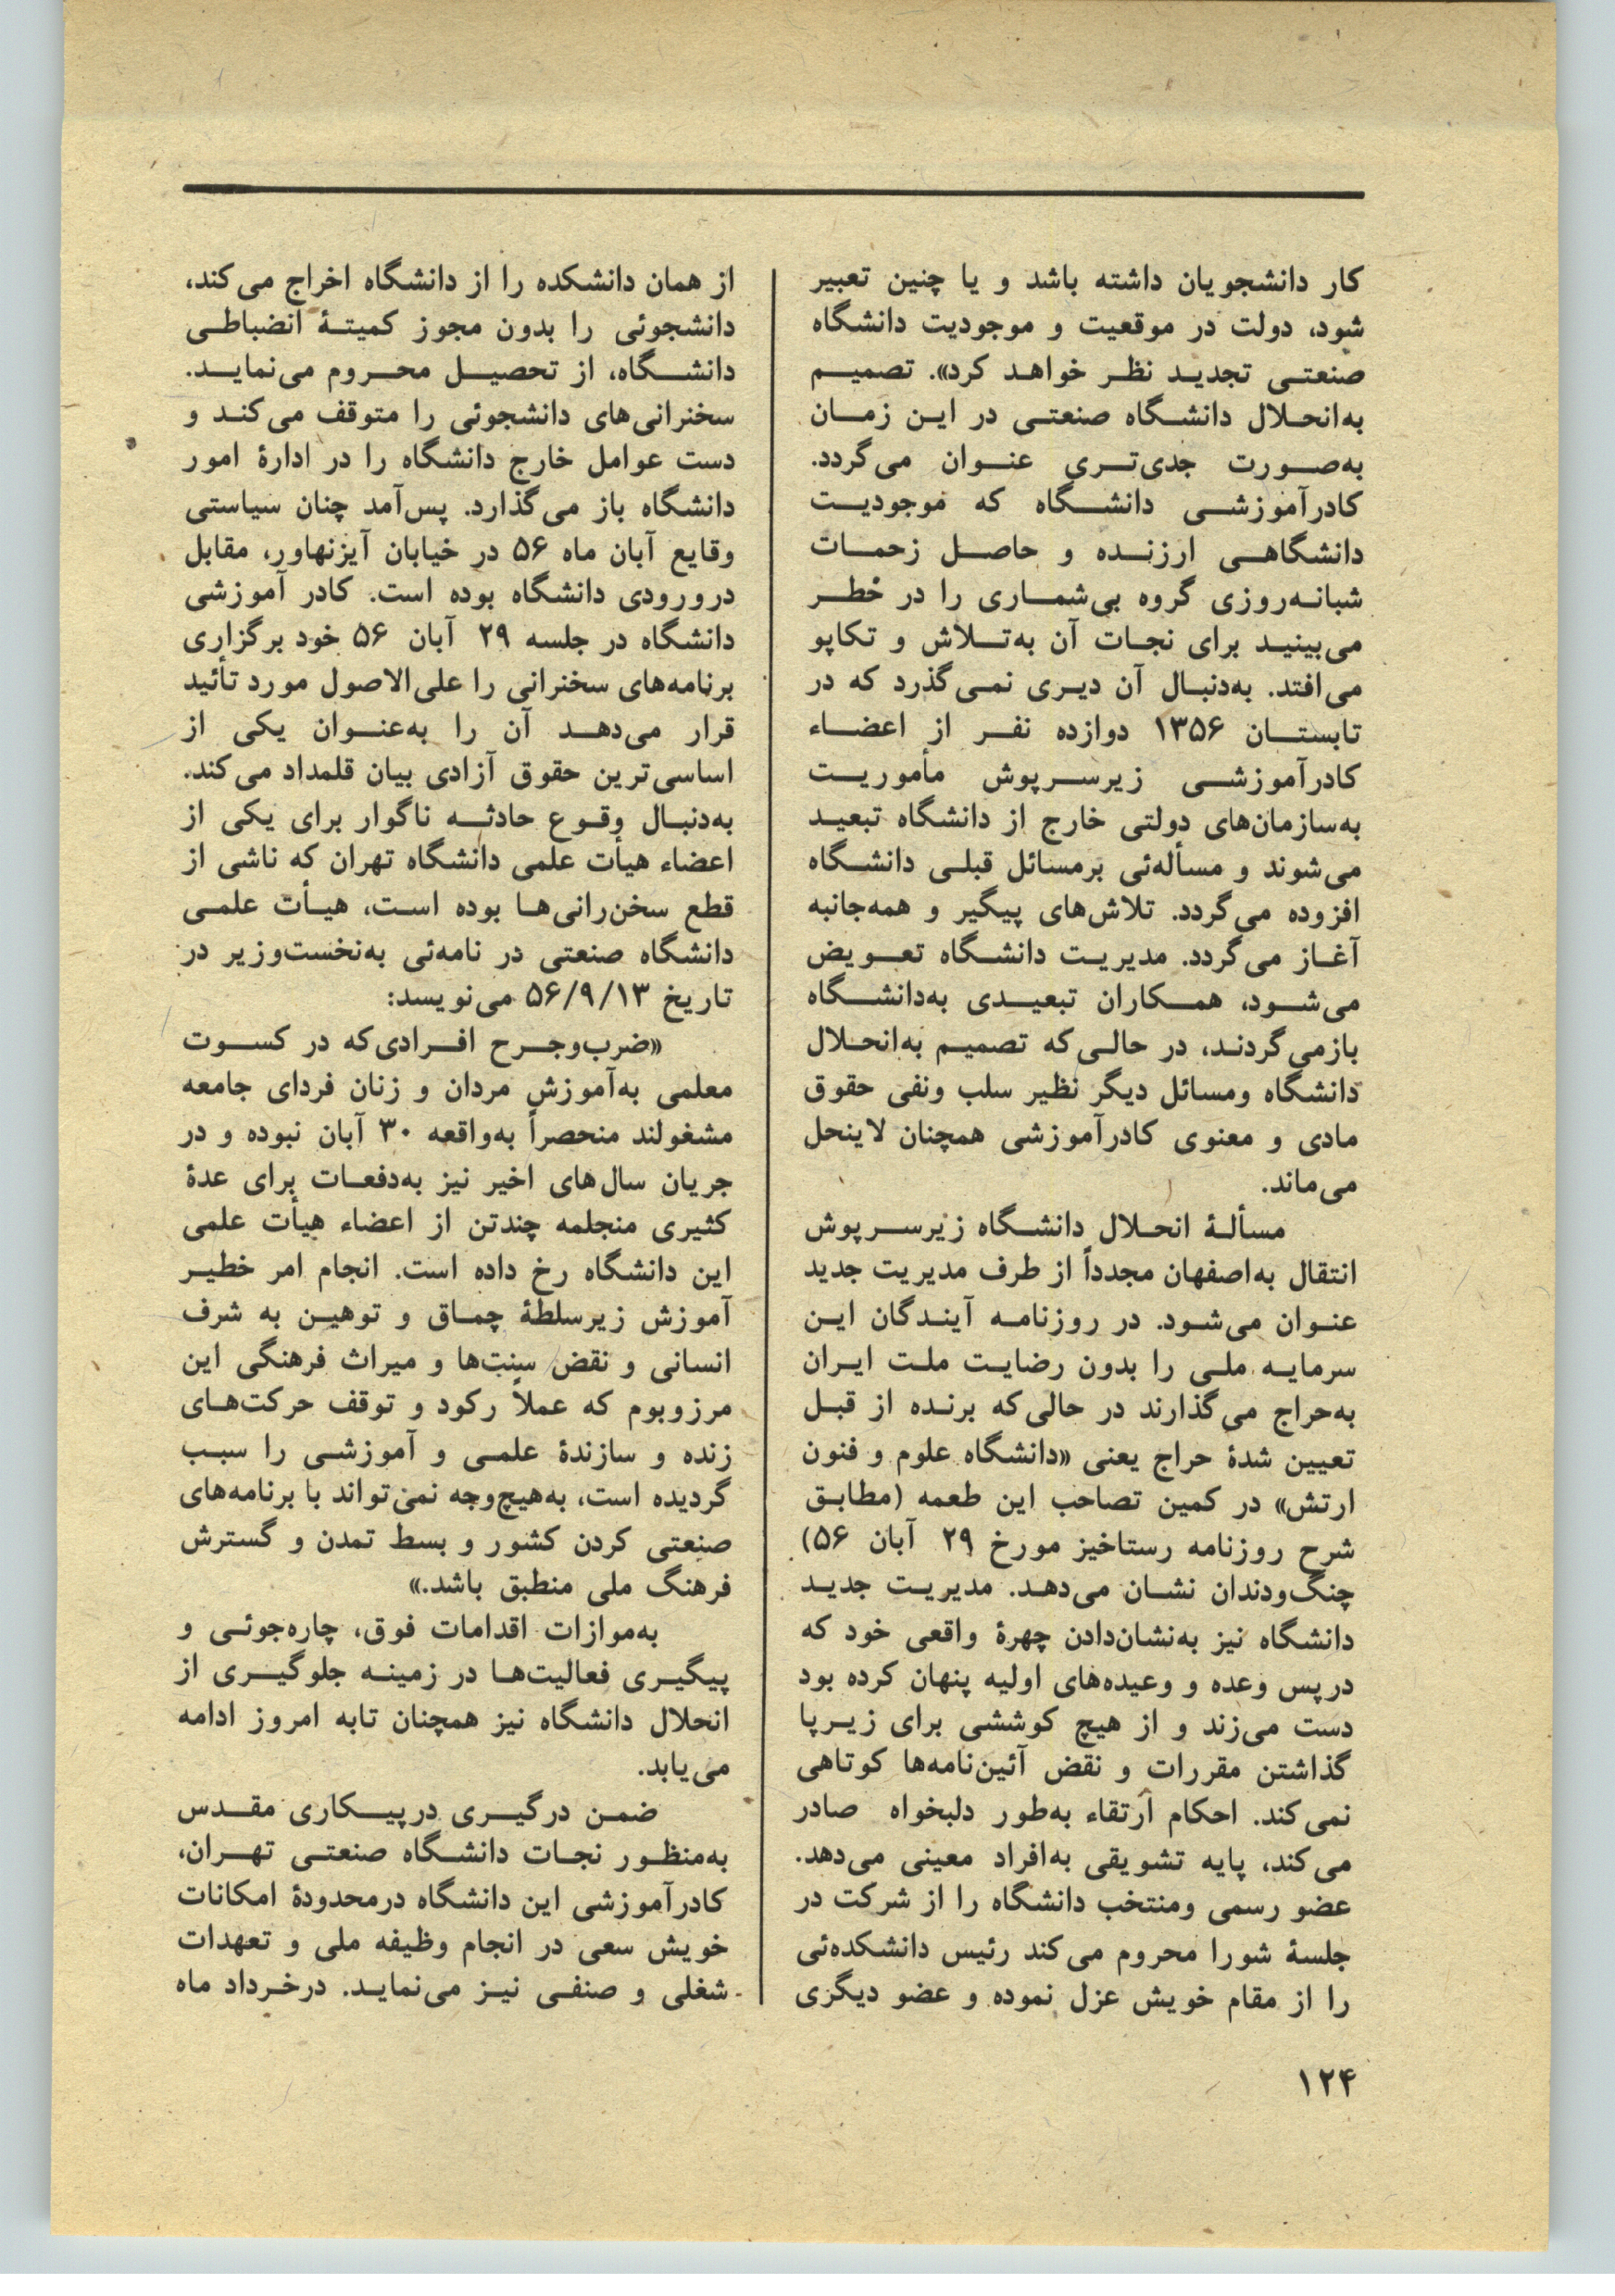 کار دانشجویان داشته باشد و یا چنین تعبیر
شود، دولت در موقعیت و موجودیت دانشگاه
صنعتی تجدید نظر خواهد کرد». تصمیم
به‌انحلال دانشگاه صنعتی در این زمان
به‌صورت جدی‌تری عنوان می‌گردد.
کادرآموزشی دانشگاه که موجودیت
دانشگاهی ارزنده و حاصل زحمات
شبانه‌روزی گروه بی‌شماری را در خطر
می‌بینید برای نجات آن به‌تلاش و تکاپو
می‌افتد. به‌دنبال آن دیری نمی‌گذرد که در
تابستان ۱۳۵۶ دوازده نفر از اعضاء
کادرآموزشی زیرسرپوش مأموریت
به‌سازمان‌های دولتی خارج از دانشگاه تبعید
می‌شوند و مسأله‌ئی برمسائل قبلی دانشگاه
افزوده می‌گردد. تلاش‌های پیگیر و همه‌جانبه
آغاز می‌گردد. مدیریت دانشگاه تعویض
می‌شود، همکاران تبعیدی به‌دانشگاه
بازمی‌گردند، در حالی‌که تصمیم به‌انحلال
دانشگاه ومسائل دیگر نظیر سلب ونفی حقوق
مادی و معنوی کادرآموزشی همچنان لاینحل
می‌ماند.
مسألهٔ انحلال دانشگاه زیرسرپوش
انتقال به‌اصفهان مجدداً از طرف مدیریت جدید
عنوان می‌شود. در روزنامه آیندگان این
سرمایه ملی را بدون رضایت ملت ایران
به‌حراج می‌گذارند در حالی‌که برنده از قبل
تعیین شدهٔ حراج یعنی «دانشگاه علوم و فنون
ارتش» در کمین تصاحب این طعمه (مطابق
شرح روزنامه رستاخیز مورخ ۲۹ آبان ۵۶)
چنگ‌ودندان نشان می‌دهد. مدیریت جدید
دانشگاه نیز به‌نشان‌دادن چهرهٔ واقعی خود که
درپس وعده و وعیده‌های اولیه پنهان کرده بود
دست می‌زند و از هیچ کوششی برای زیرپا
گذاشتن مقررات و نقض آئین‌نامه‌ها کوتاهی
نمی‌کند. احکام ارتقاء به‌طور دلبخواه صادر
می‌کند، پایه تشویقی به‌افراد معینی می‌دهد.
عضو رسمی ومنتخب دانشگاه را از شرکت در
جلسهٔ شورا محروم می‌کند رئیس دانشکده‌ئی
را از مقام خویش عزل نموده و عضو دیگری
از همان دانشکده را از دانشگاه اخراج می‌کند،
دانشجوئی را بدون مجوز کمیتهٔ انضباطی
دانشگاه، از تحصیل محروم می‌نماید.
سخنرانی‌های دانشجوئی را متوقف می‌کند و
دست عوامل خارج دانشگاه را در ادارهٔ امور
دانشگاه باز می‌گذارد. پس‌آمد چنان سیاستی
وقایع آبان ماه ۵۶ در خیابان آیزنهاور، مقابل
درورودی دانشگاه بوده است. کادر آموزشی
دانشگاه در جلسه ۲۹ آبان ۵۶ خود برگزاری
برنامه‌های سخنرانی را علی‌الاصول مورد تأئید
قرار می‌دهد آن را به‌عنوان یکی از
اساسی‌ترین حقوق آزادی بیان قلمداد می‌کند.
به‌دنبال وقوع حادثه ناگوار برای یکی از
اعضاء هیأت علمی دانشگاه تهران که ناشی از
قطع سخن‌رانی‌ها بوده است، هیأت علمی
دانشگاه صنعتی در نامه‌ئی به‌نخست‌وزیر در
تاریخ ۵۶/۹/۱۳ می‌نویسد:
«ضرب‌وجرح افرادی‌که در کسوت
معلمی به‌آموزش مردان و زنان فردای جامعه
مشغولند منحصراً به‌واقعه ۳۰ آبان نبوده و در
جریان سال‌های اخیر نیز به‌دفعات برای عدهٔ
کثیری منجلمه چندتن از اعضاء هیأت علمی
این دانشگاه رخ داده است. انجام امر خطیر
آموزش زیرسلطهٔ چماق و توهین به شرف
انسانی و نقض سنت‌ها و میراث فرهنگی این
مرزوبوم که عملاً رکود و توقف حرکت‌های
زنده و سازندهٔ علمی و آموزشی را سبب
گردیده است، به‌هیچ‌وجه نمی‌تواند با برنامه‌های
صنعتی کردن کشور و بسط تمدن و گسترش
فرهنگ ملی منطبق باشد.»
به‌موازات اقدامات فوق، چاره‌جوئی و
پیگیری فعالیت‌ها در زمینه جلوگیری از
انحلال دانشگاه نیز همچنان تابه امروز ادامه
می‌یابد.
ضمن درگیری درپیکاری مقدس
به‌منظور نجات دانشگاه صنعتی تهران،
کادرآموزشی این دانشگاه درمحدودهٔ امکانات
خویش سعی در انجام وظیفه ملی و تعهدات
شغلی و صنفی نیز می‌نماید. درخرداد ماه
۱۲۴